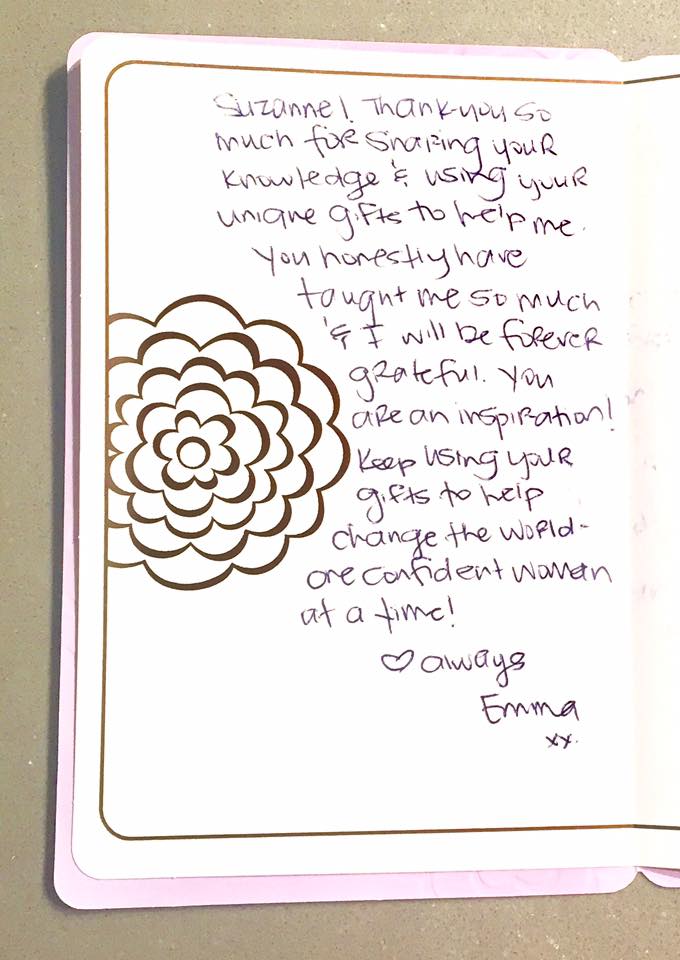 Suzanne! Thank-you so
much for sharing your
knowledge & using your
unique gifts to help me.
You honestly have
taught me so much
& I will be forever
grateful. You
are an inspiration!
Keep using your
gifts to help
change the world-
one confident woman
at a time!
♡ always
Emma
xx.